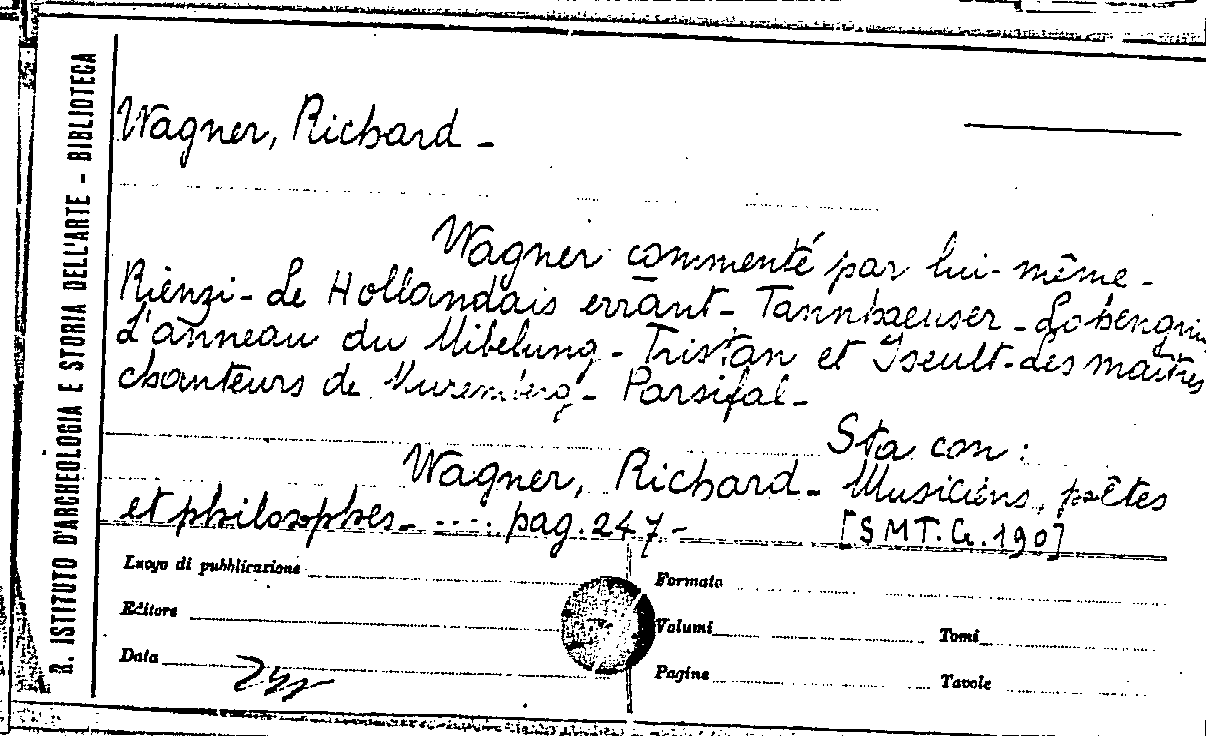 R. ISTITUTO D'ARCHEOLOGIA E STORIA DELL'ARTE - BIBLIOTECA
Wagner, Richard -
Wagner commenté par lui-même -
Rienzi - Le Hollandais errant - Tannhaeuser - Lohengrin
L'anneau du Nibelung - Tristan et Iseult - Les maîtres
chanteurs de Nuremberg - Parsifal -
Sta con:
Wagner, Richard - Musiciens, poêtes
et philosophes - .... pag. 247 - [SMT. G. 190]
Luogo di pubblicazione Formato
Editore Volumi Tomi
Data Pagine Tavole